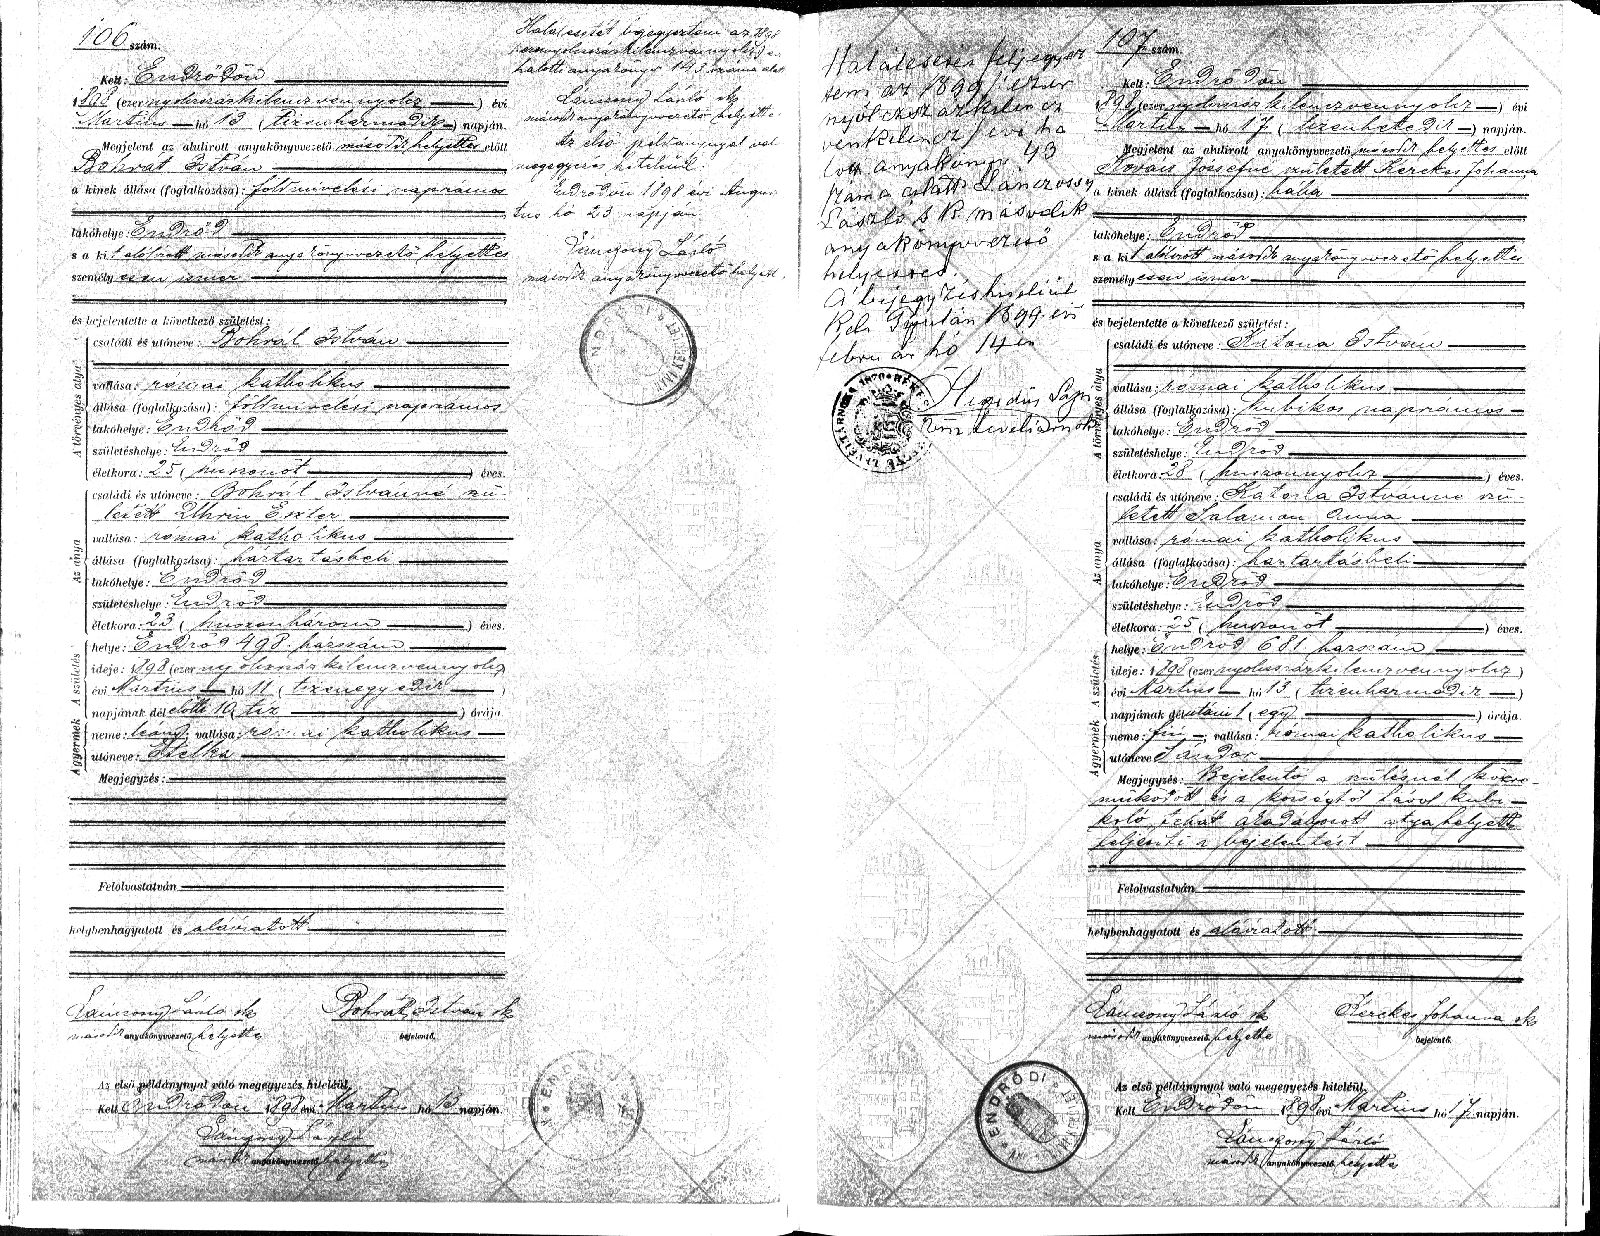 106 szám.
Kelt: Endrődön
1898 (ezernyolcszázkilenczvennyolcz) évi
Martius hó 13 (tizenharmadik) napján.
Megjelent az alulirott anyakönyvvezető második helyettes előtt
Bohrát István
a kinek állása (foglalkozása): földmivelési napszámos
lakóhelye: Endrőd
s a kit alólirott második anyakönyvvezető helyettes
személyesen ismer
és bejelentette a következő születést:
A törvényes atya
családi és utóneve: Bohrát István
vallása: romai katholikus
állása (foglalkozása): földmivelési napszámos
lakóhelye: Endrőd
születéshelye: Endrőd
életkora: 25 (huszonöt) éves.
Az anya
családi és utóneve: Bohrát Istvánné szü-
letett Uhrin Eszter
vallása: romai katholikus
állása (foglalkozása): háztartásbeli
lakóhelye: Endrőd
születéshelye: Endrőd
életkora: 23 (huszonhárom) éves.
A születés
helye: Endrőd 498. házszám
ideje: 1898 (ezernyolczszázkilenczvennyolcz)
évi Martius hó 11 (tizenegyedik)
napjának délelőtti 10 (tiz) órája.
A gyermek
neme: leány; vallása: romai katholikus
utóneve: Etelka
Megjegyzés:
Felolvastatván
helybenhagyatott és aláiratott
Lánczony László sk
második anyakönyvvezető helyettes
Bohrát István sk
bejelentő.
Az első példánynyal való megegyezés hiteléül.
Kelt Endrődön 1898 évi Martius hó 13 napján.
Lánczony László
második anyakönyvvezető helyettes
Halálesetét bejegyeztem az 1898
ezernyolczszázkilenczvennyolcz évi
halotti anyakönyv 143 száma alatt
Lánczony László sk
második anyakönyvvezető helyettes.
Az első példánynyal való
megegyezés hiteléül.
Endrődön 1898 évi Augusz
tus hó 23 napján
Lánczony László
második anyakönyvvezető helyettes.
Halálesetét feljegyez
tem az 1899 (ezer
nyolczszázkilencz
venkilencz) évi ha
lotti anyakönyv 43
száma alatt Lánczony
László s.k. második
anyakönyvvezető
helyettes.
A bejegyzés hiteléül
Kelt Gyulán 1899. évi
február hó 14 én
107 szám.
Kelt: Endrődön
1898 (ezernyolczszázkilenczvennyolcz) évi
Martius hó 17 (tizenhetedik) napján.
Megjelent az alulirott anyakönyvvezető második helyettes előtt
Kovács Józsefné született Kerekes Johanna
a kinek állása (foglalkozása): bába
lakóhelye: Endrőd
s a kit alólirott második anyakönyvvezető helyettes
személyesen ismer
és bejelentette a következő születést:
A törvényes atya
családi és utóneve: Katona István
vallása: romai katholikus
állása (foglalkozása): kubikos napszámos
lakóhelye: Endrőd
születéshelye: Endrőd
életkora: 28 (huszonnyolcz) éves.
Az anya
családi és utóneve: Katona Istvánné szü-
letett Salamon Anna
vallása: romai katholikus
állása (foglalkozása): háztartásbeli
lakóhelye: Endrőd
születéshelye: Endrőd
életkora: 25 (huszonöt) éves.
A születés
helye: Endrőd 681 házszám
ideje: 1898 (ezernyolczszázkilenczvennyolcz)
évi Martius hó 13 (tizenharmadik)
napjának délutáni 1 (egy) órája.
A gyermek
neme: fiu; vallása: romai katholikus
utóneve Sándor
Megjegyzés: Bejelentő a szülésnél közre-
müködött és a községtől távol kubi-
koló, tehát akadályozott atya helyett
teljesiti a bejelentést
Felolvastatván
helybenhagyatott és aláiratott
Lánczony László sk
második anyakönyvvezető helyettes
Kerekes Johanna sk
bejelentő.
Az első példánynyal való megegyezés hiteléül.
Kelt Endrődön 1898 évi Martius hó 17 napján.
Lánczony László
második anyakönyvvezető helyettes